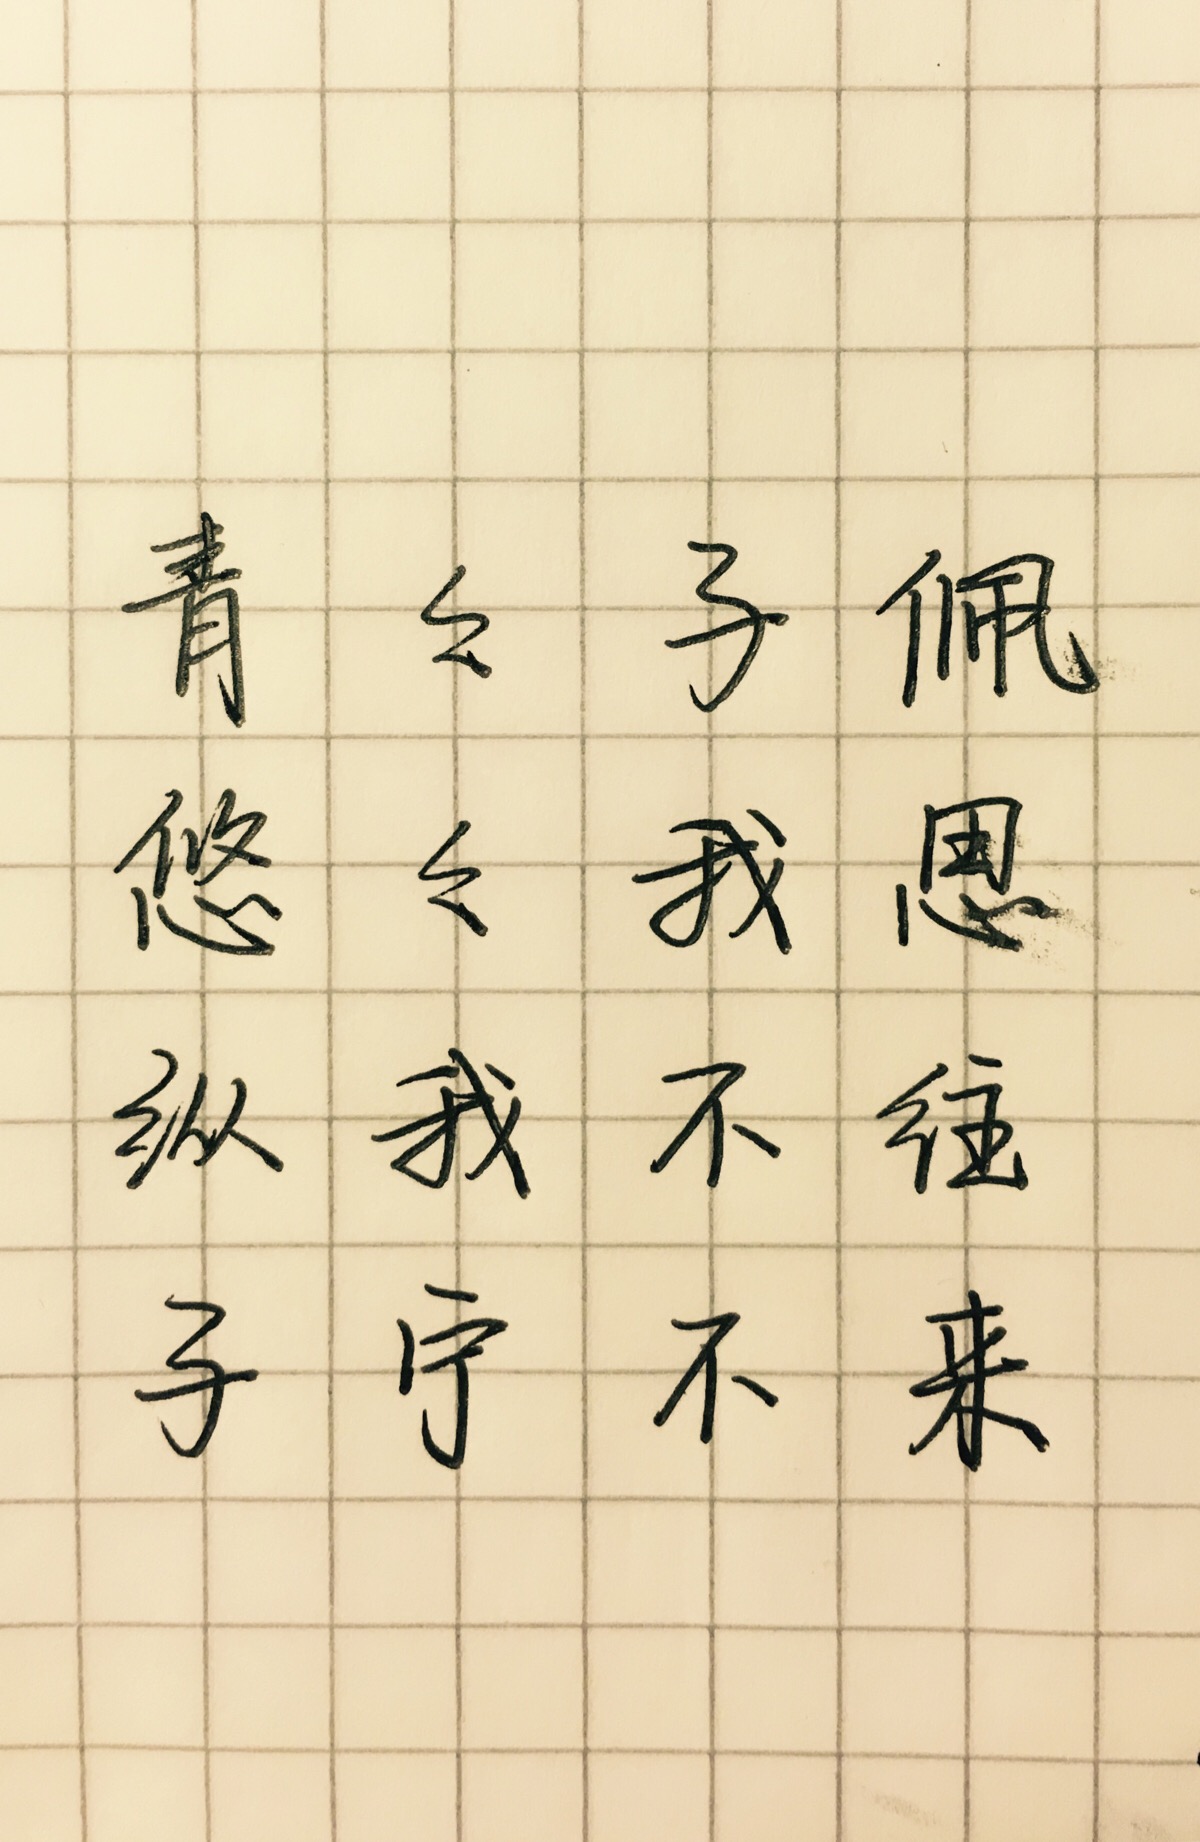 青々子佩
悠々我思
纵我不往
子宁不来